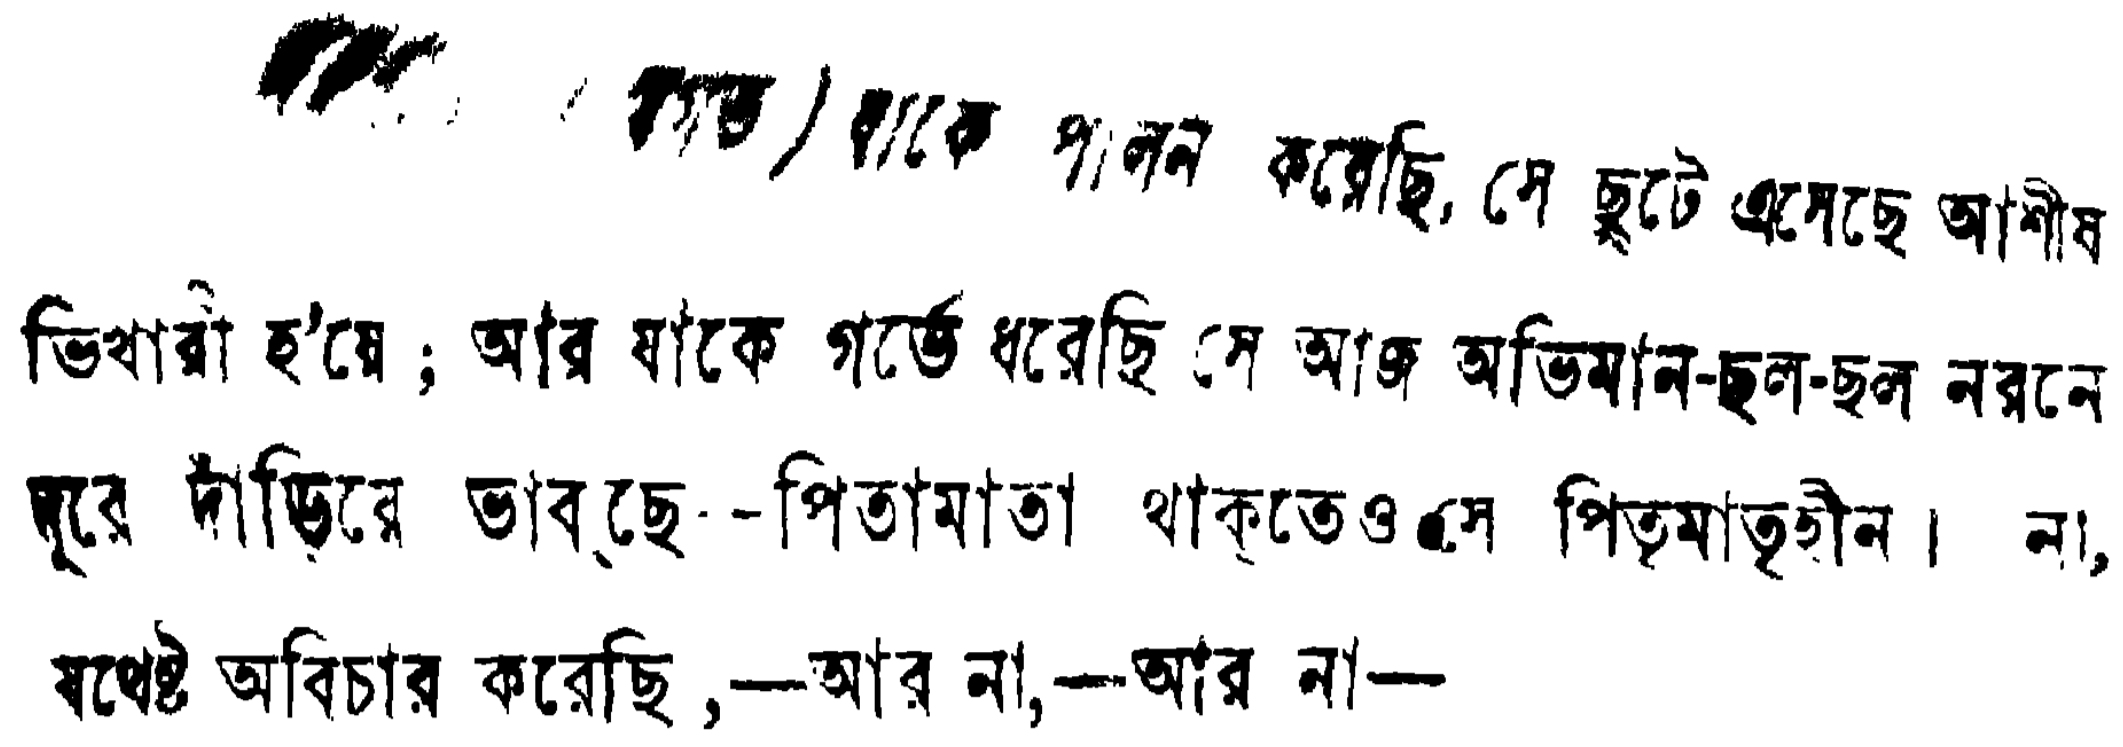 (স্বগত) যাকে পালন করেছি, সে ছুটে এসেছে আশীষ
ভিখারী হ'য়ে; আর যাকে গর্ভে ধরেছি সে আজ অভিমান-ছল-ছল নয়নে
দূরে দাঁড়িয়ে ভাব্‌ছে--পিতামাতা থাক্‌তেও সে পিতৃমাতৃহীন। না,
যথেষ্ট অবিচার করেছি,—আর না,—আর না—